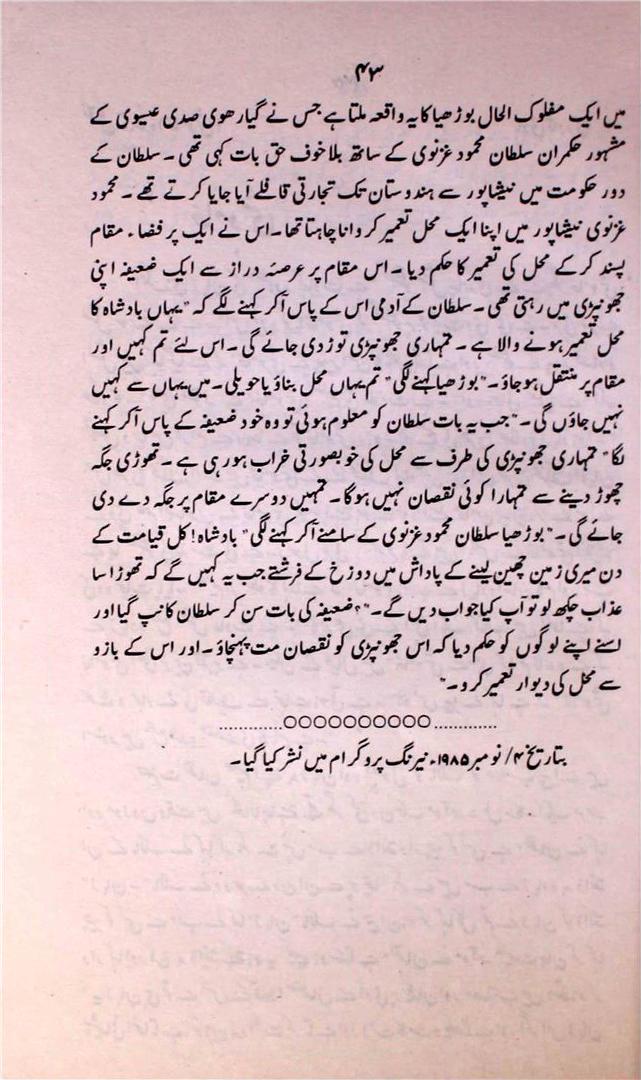 ۴۳
میں ایک مفلوک الحال بوڑھیا کا یہ واقعہ ملتا ہے جس نے گیارھوی صدی عیسوی کے
مشہور حکمران سلطان محمود غزنوی کے ساتھ بلا خوف حق بات کہی تھی۔ سلطان کے
دور حکومت میں نیشاپور سے ہندوستان تک تجارتی قافلے آیا جایا کرتے تھے۔ محمود
غزنوی نیشاپور میں اپنا ایک محل تعمیر کروانا چاہتا تھا۔ اس نے ایک پر فضاء مقام
پسند کر کے محل کی تعمیر کا حکم دیا۔ اس مقام پر عرصۂ دراز سے ایک ضعیفہ اپنی
جھونپڑی میں رہتی تھی۔ سلطان کے آدمی اس کے پاس آکر کہنے لگے کہ "یہاں بادشاہ کا
محل تعمیر ہونے والا ہے۔ تمہاری جھونپڑی توڑ دی جائے گی۔ اس لئے تم کہیں اور
مقام پر منتقل ہو جاؤ۔" بوڑھیا کہنے لگی "تم یہاں محل بناؤ یا حویلی۔ میں یہاں سے کہیں
نہیں جاؤں گی۔" جب یہ بات سلطان کو معلوم ہوئی تو وہ خود ضعیفہ کے پاس آکر کہنے
لگا "تمہاری جھونپڑی کی طرف سے محل کی خوبصورتی خراب ہو رہی ہے۔ تھوڑی جگہ
چھوڑ دینے سے تمہارا کوئی نقصان نہیں ہوگا۔ تمہیں دوسرے مقام پر جگہ دے دی
جائے گی۔" بوڑھیا سلطان محمود غزنوی کے سامنے آکر کہنے لگی "بادشاہ! کل قیامت کے
دن میری زمین چھین لینے کے پاداش میں دوزخ کے فرشتے جب یہ کہیں گے کہ تھوڑا سا
عذاب چکھ لو تو آپ کیا جواب دیں گے۔"؟ ضعیفہ کی بات سن کر سلطان کانپ گیا اور
اسنے اپنے لوگوں کو حکم دیا کہ اس جھونپڑی کو نقصان مت پہنچاؤ۔ اور اس کے بازو
سے محل کی دیوار تعمیر کرو۔"
............○○○○○○○○○○............
بتاریخ ۴/ نومبر ۱۹۸۵ء نیرنگ پروگرام میں نشر کیا گیا۔